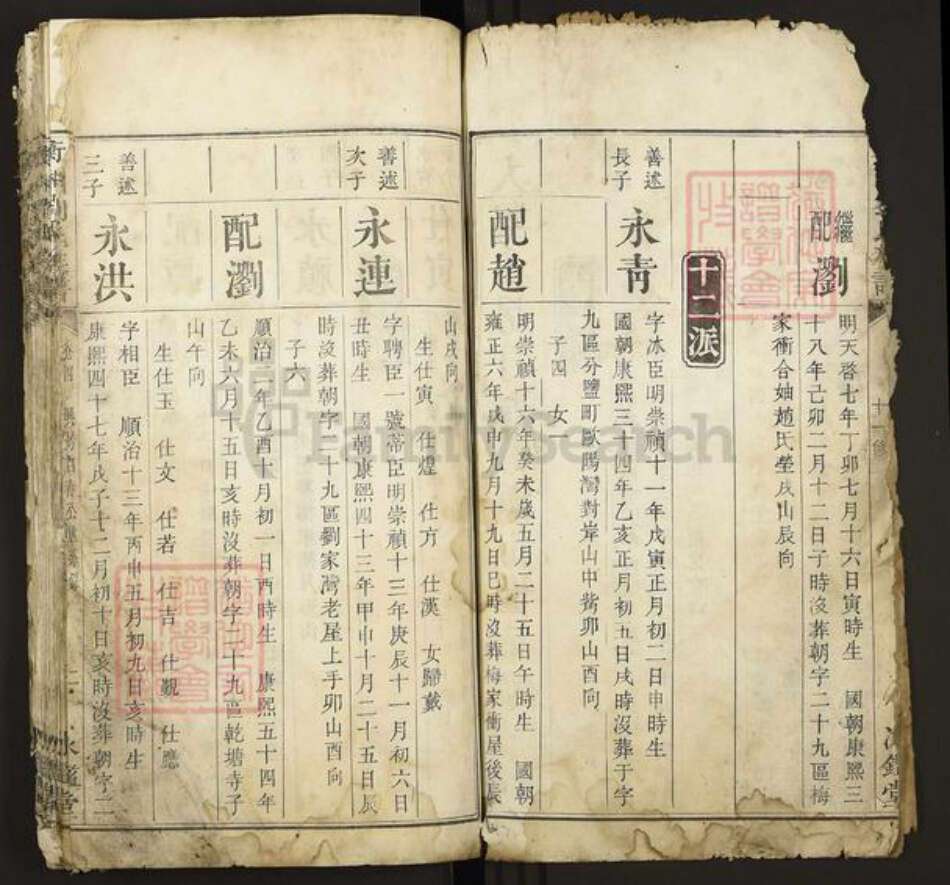 繼
配瀏
明天啓七年丁卯七月十六日寅時生 國朝康熙三
十八年己卯二月十二日子時沒葬朝字二十九區梅
家衝合妯趙氏塋戌山辰向
十二派
善述
長子
永青
字冰臣明崇禎十一年戊寅正月初二日申時生
國朝康熙三十四年乙亥正月初五日戌時沒葬于字
九區分鹽町歐陽灣對岸山中嘴卯山酉向
子四 女一
配趙
明崇禎十六年癸未歲五月二十五日午時生 國朝
雍正六年戊申九月十九日巳時沒葬梅家衝屋後辰
山戌向
生仕寅 仕煌 仕方 仕漢 女歸戴
善述
次子
永連
字聘臣一號帝臣明崇禎十三年庚辰十一月初六日
丑時生 國朝康熙四十三年甲申十月二十五日辰
時沒葬朝字二十九區劉家灣老屋上手卯山酉向
子六
配瀏
順治二年乙酉十月初一日酉時生 康熙五十四年
乙未六月十五日亥時沒葬朝字二十九區乾塘寺子
山午向
生仕玉 仕文 仕若 仕吉 仕觀 仕應
善述
三子
永洪
字相臣 順治十三年丙申五月初九日亥時生
康熙四十七年戊子十二月初十日亥時沒葬朝字二
FamilySearch